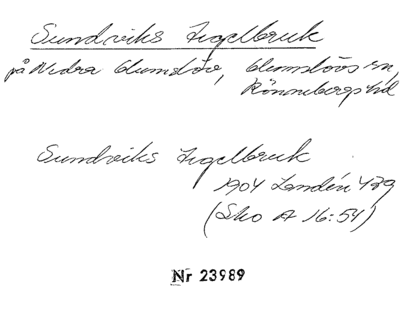 Sundviks Tegelbruk
på Nedra Glumslöv, Glumslövs sn,
Rönnebergs hd
Sundviks Tegelbruk
1904 Lendén 479
(Sko A 16:54)
Nr 23989